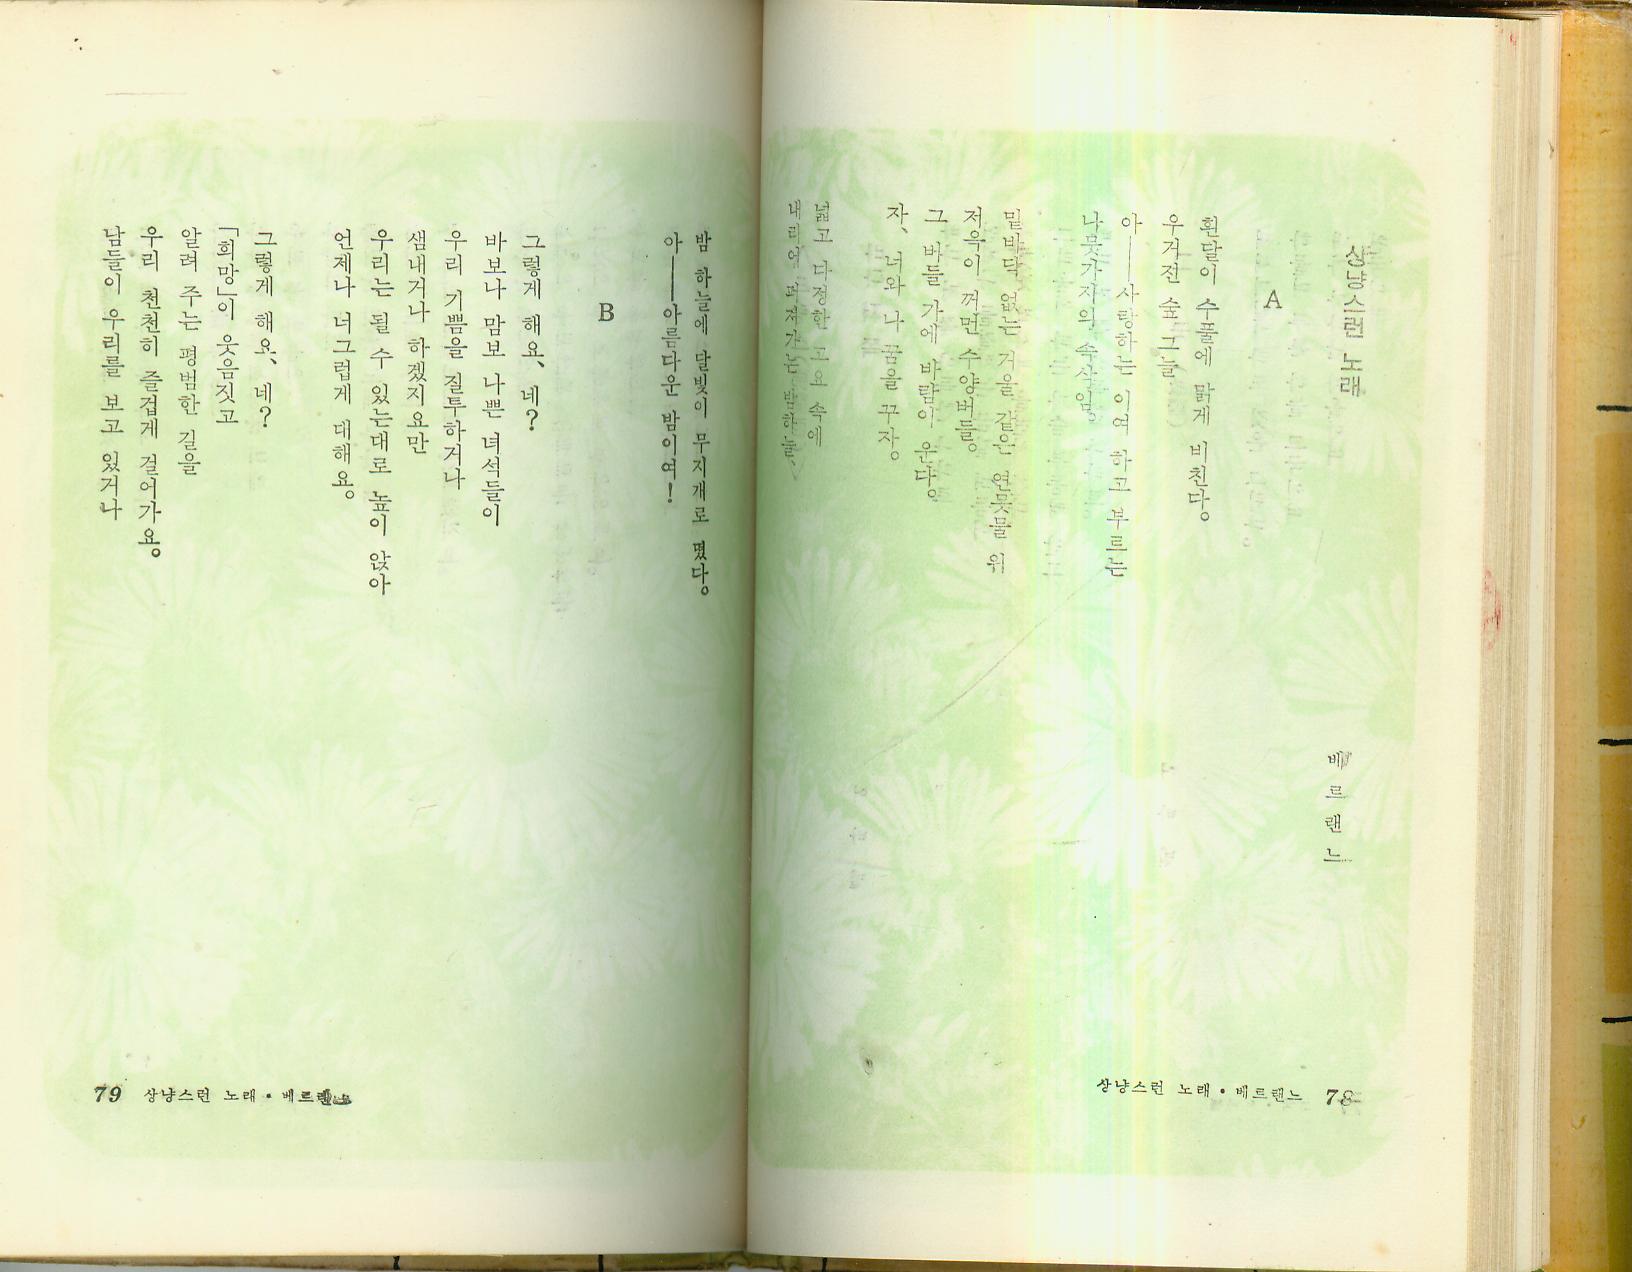 상냥스런 노래
베르랜느
A
흰달이 수풀에 맑게 비친다。
우거전 숲 그늘
아──사랑하는 이여 하고 부르는
나뭇가지의 속삭임
밑바닥 없는 거울 같은 연못물 위
저윽이 꺼먼 수양버들。
그 바들 가에 바람이 운다。
자、너와 나 꿈을 꾸자。
넓고 다정한 고요 속에
내리어 퍼져가는 밤하늘、
상냥스런 노래・베르랜느 78
밤 하늘에 달빛이 무지개로 떴다。
아──아름다운 밤이여!
B
그렇게 해요、네?
바보나 맘보 나쁜 녀석들이
우리 기쁨을 질투하거나
샘내거나 하겠지요만
우리는 될 수 있는대로 높이 앉아
언제나 너그럽게 대해요。
그렇게 해요、네?
「희망」이 웃음짓고
알려 주는 평범한 길을
우리 천천히 즐겁게 걸어가요。
남들이 우리를 보고 있거나
79 상냥스런 노래・베르랜느